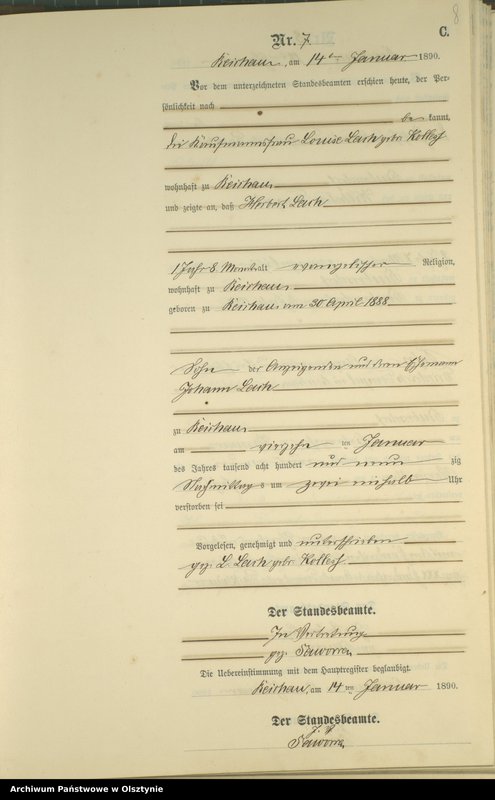 8
C.
Nr. 7
am 14ten Januar 1890.
Vor dem unterzeichneten Standesbeamten erschien heute, der Per-
sönlichkeit nach
be kannt,
die Kaufmannsfrau Louise Lach geb.
wohnhaft zu
und zeigte an, daß Herbert Lach
1 Jahr 8 Monat alt evangelischer Religion,
wohnhaft zu
geboren zu am 30 April 1888
Sohn der Anzeigenden und deren Ehemann
Johann Lach
zu
am vierzehn ten Januar
des Jahres tausend acht hundert und neun zig
Nachmittag s um zwei einhalb Uhr
verstorben sei
Vorgelesen, genehmigt und unterschrieben
gez. L. Lach geb.
Der Standesbeamte.
In Vertretung
gez.
Die Uebereinstimmung mit dem Hauptregister beglaubigt.
am 14 ten Januar 1890.
Der Standesbeamte.
J. V.
Archiwum Państwowe w Olsztynie